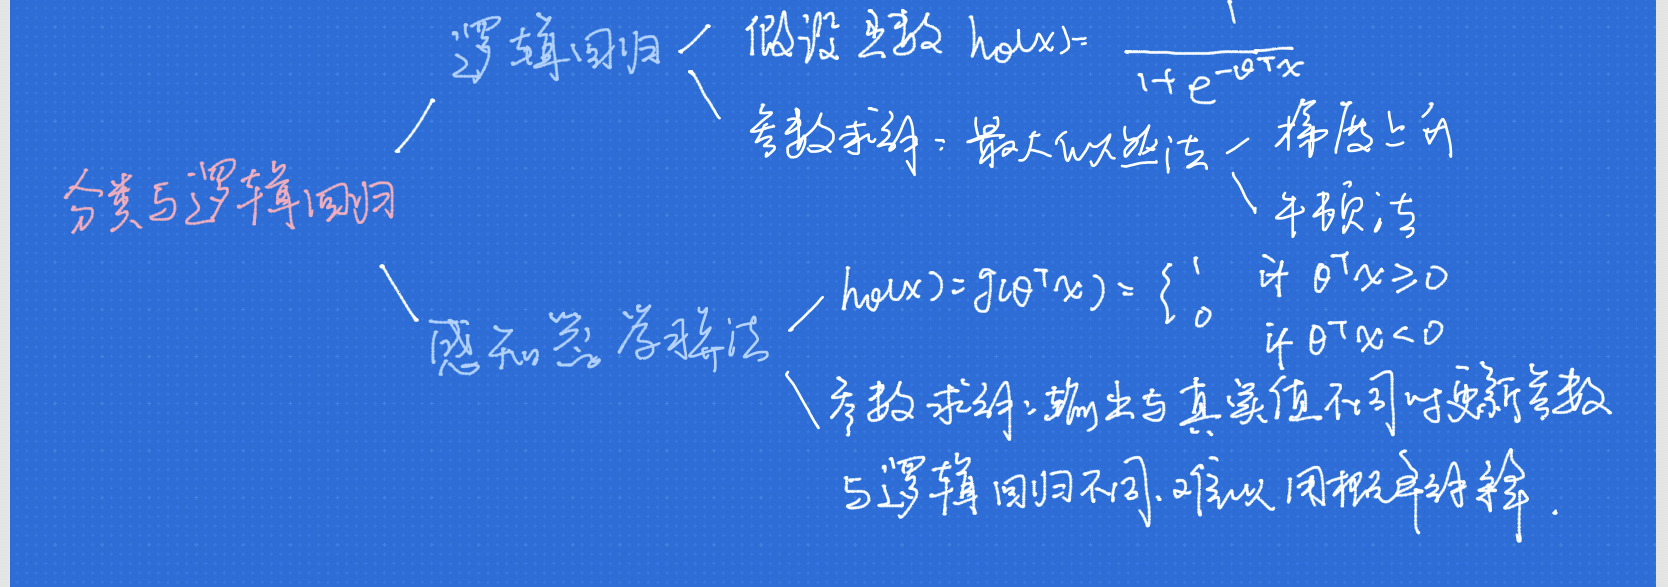 逻辑回归
假设函数 hθ(x)= 1/(1+e^(-θᵀx))
参数求解：最大似然法
梯度上升
牛顿法
分类与逻辑回归
感知器学习算法
hθ(x)=g(θᵀx)={ 1 if θᵀx≥0
0 if θᵀx<0
参数求解：输出与真实值不同时更新参数
与逻辑回归不同.难以用概率解释.